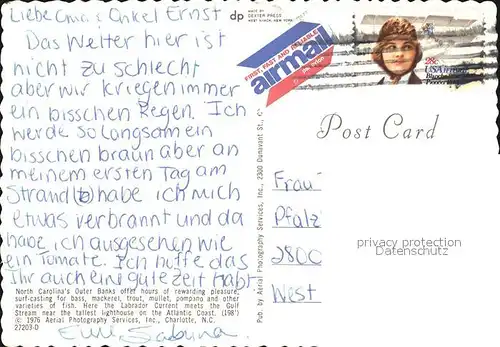 Liebe Oma + Onkel Ernst
Das Wetter hier ist
nicht zu schlecht
aber wir kriegen immer
ein bisschen Regen. Ich
werde so langsam ein
bisschen braun aber an
meinem ersten Tag am
Strand habe ich mich
etwas verbrannt und da
habe ich ausgesehen wie
ein Tomate. Ich hoffe das
Ihr auch eine gute Zeit habt
North Carolina's Outer Banks offer hours of rewarding pleasure,
surf-casting for bass, mackerel, trout, mullet, pompano and other
varieties of fish. Here the Labrador Current meets the Gulf
Stream near the tallest lighthouse on the Atlantic Coast. (198')
(c) 1976 Aerial Photography Services, Inc., Charlotte, N.C.
27203-D
Sabina
dp
MADE BY
DEXTER PRESS
WEST NYACK, NEW YORK
FIRST, FAST AND RELIABLE
airmail
28c
USAirmail
Blanche
Pub. by Aerial Photography Services, Inc., 2300 Dunavant St., C
Post Card
Frau
Pfalz
2800
West
privacy protection
Datenschutz